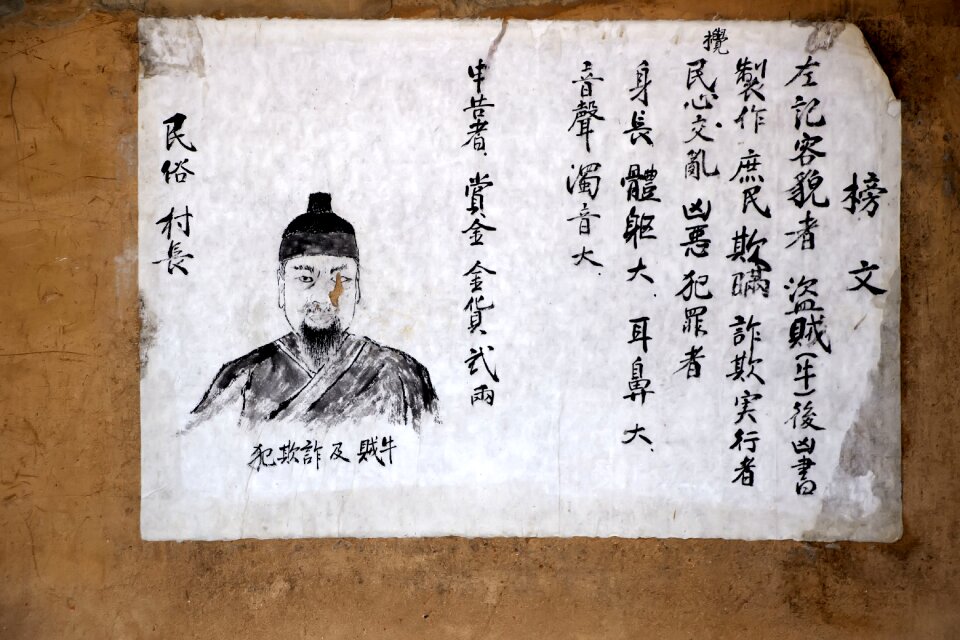 榜文
左記容貌者 盜賊(牛)後凶書
製作 庶民 欺瞞 詐欺実行者
攪
民心交亂 凶悪 犯罪者
身長 體躯大. 耳鼻大.
音聲 濁音大.
申告者. 賞金 金貨 弐兩
犯欺詐及賊牛
民俗 村長